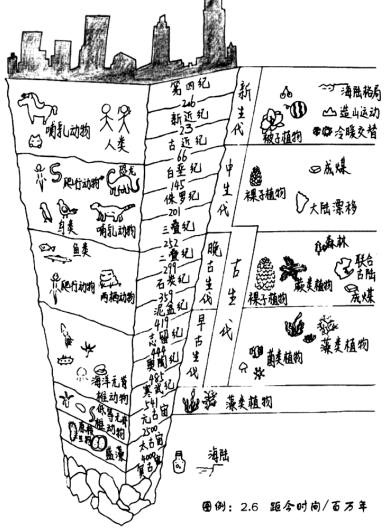 哺乳动物
人类
爬行动物
恐龙
鸟类
哺乳动物
鱼类
爬行动物
两栖动物
海洋无脊
椎动物
低等无脊
椎动物
原核
生物
蓝藻
第四纪
2.6
新近纪
23
古近纪
66
白垩纪
145
侏罗纪
201
三叠纪
252
二叠纪
299
石炭纪
359
泥盆纪
419
志留纪
444
奥陶纪
485
寒武纪
541
元古宙
2500
太古宙
4000
冥古宙
新生代
中生代
晚古生代
早古生代
古生代
被子植物
海陆格局
造山运动
冷暖交替
裸子植物
成煤
大陆漂移
裸子植物
森林
蕨类植物
联合
古陆
成煤
菌类植物
藻类植物
藻类植物
海陆
图例: 2.6 距今时间/百万年